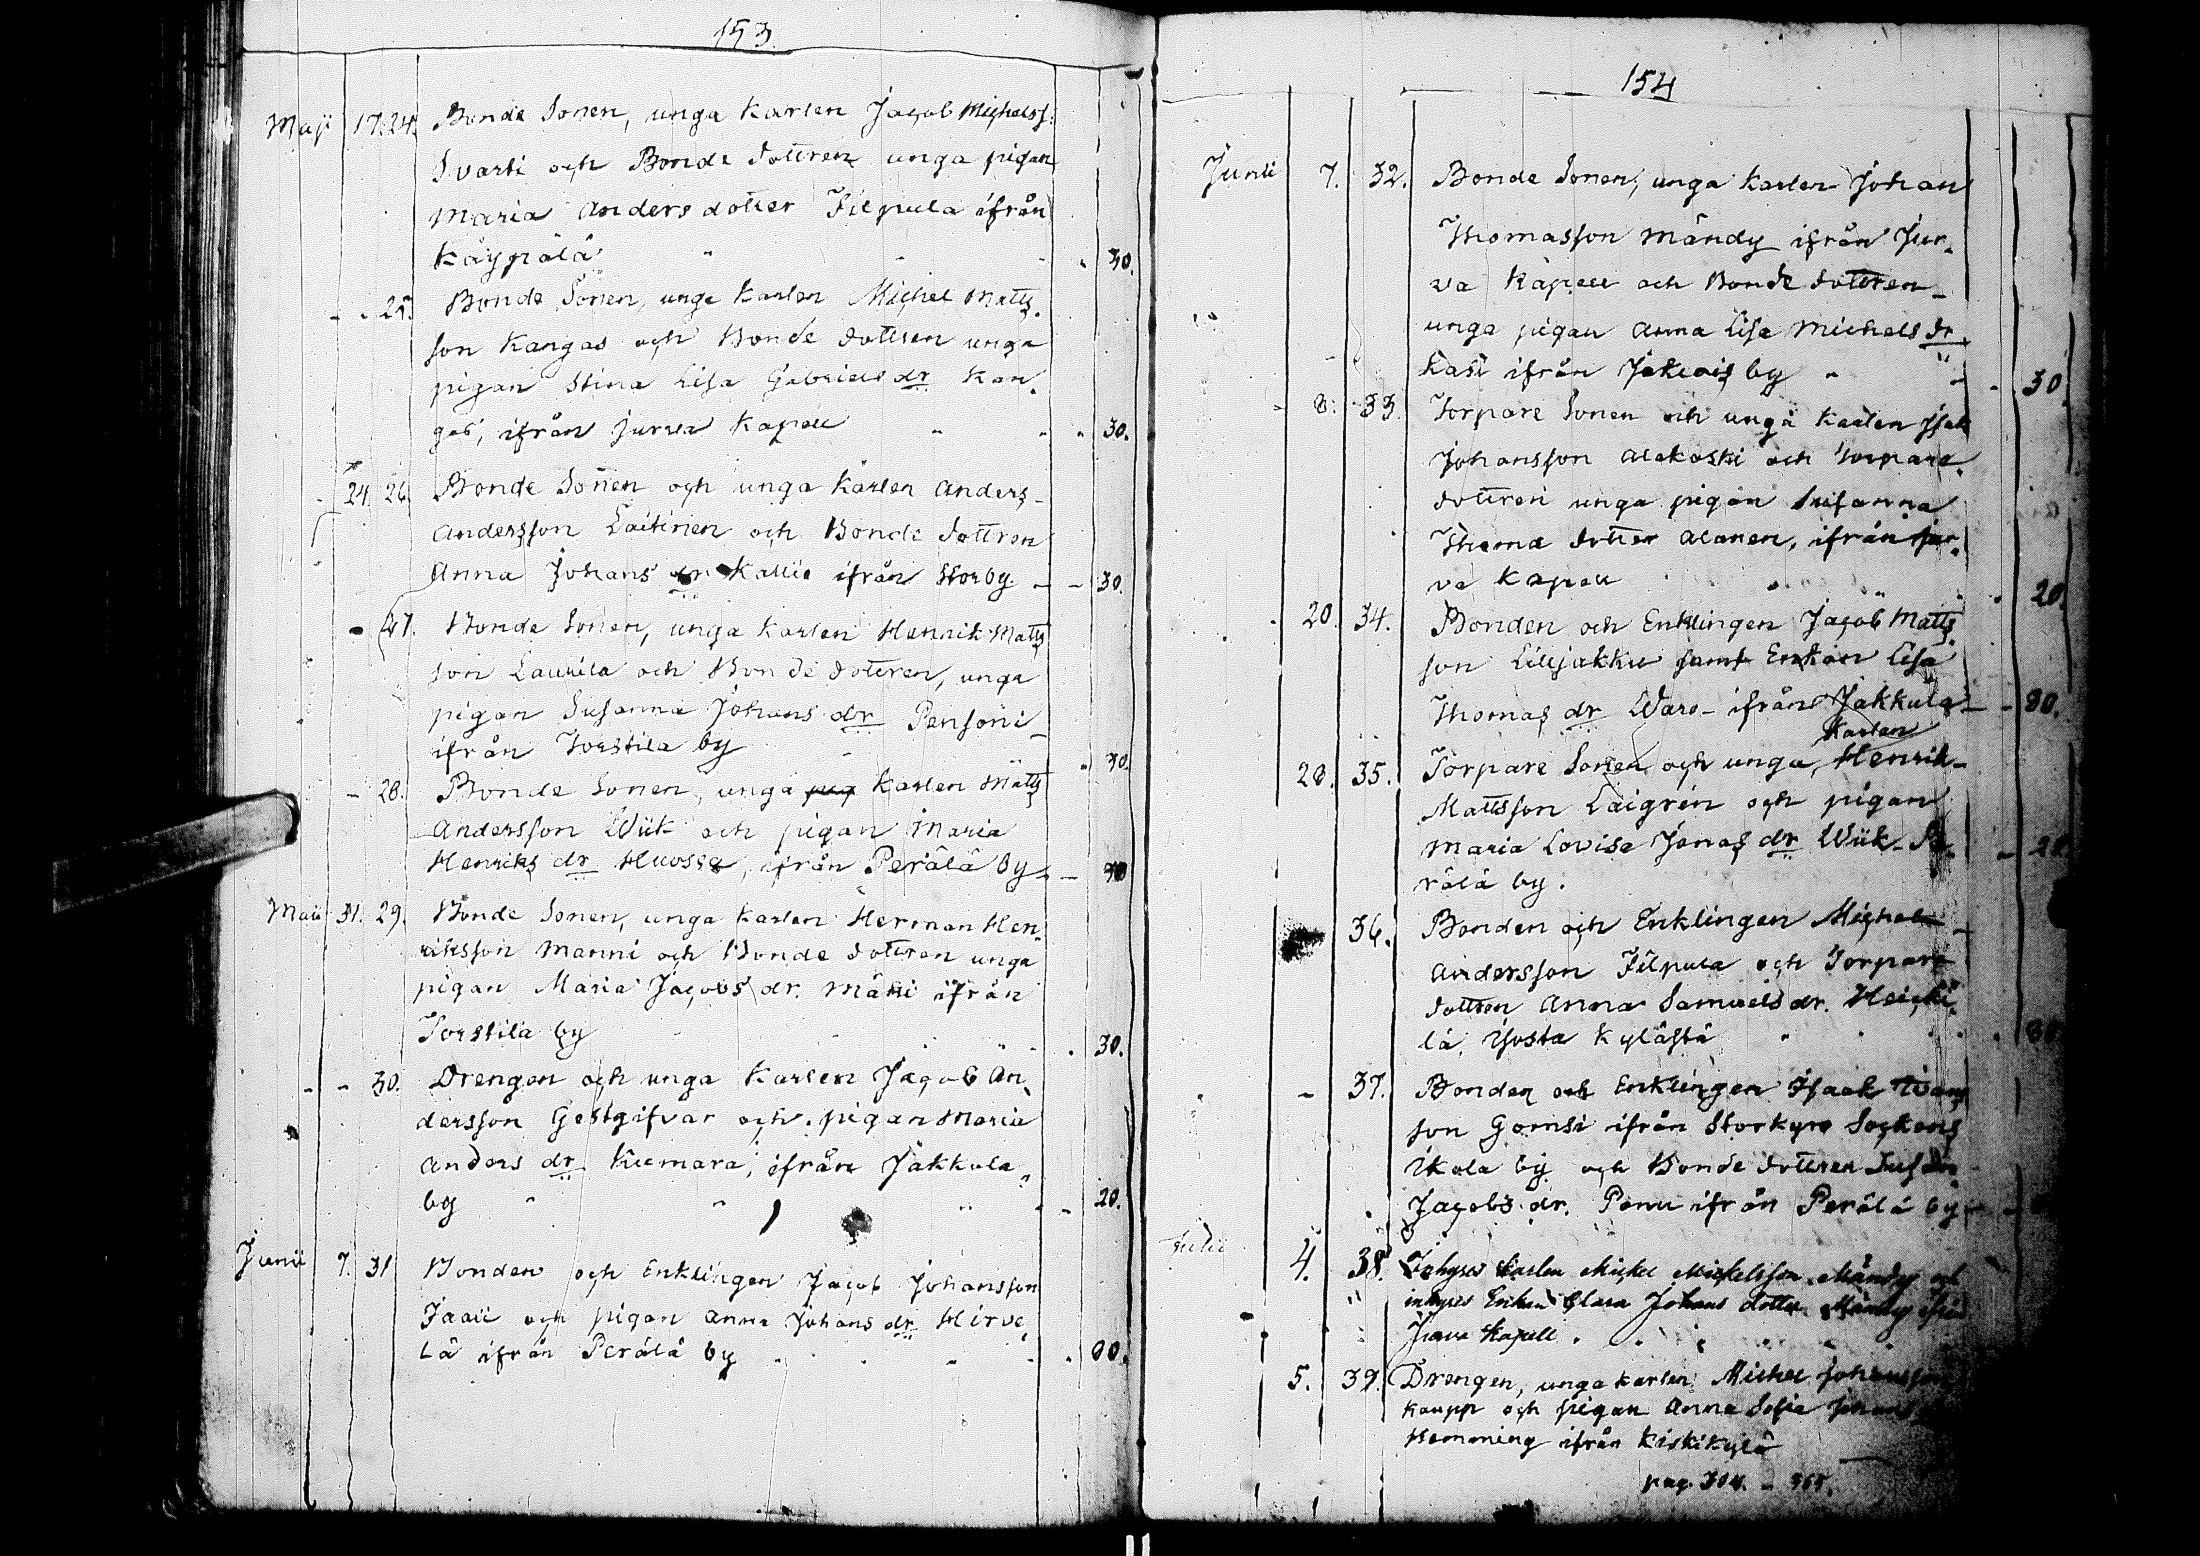 153.
Maji 17. 24. Bonde Sonen, unga Karlen Jacob Michelss:
Svarti och Bonde dottren unga pigan
Maria Anders dotter Filpula ifrån
Käypälä " - - " 30.
- " 25. Bonde Sonen, unga Karlen Michel Matts-
son Kangas och Bonde dottren unga
pigan Stina Lisa Gabriels dr Kan-
gas, ifrån Jurva Kapell " " " 30.
- 24. 26. Bonde Sonen och unga Karlen Anders-
Andersson Laitinen och Bonde dottren
Anna Johans dr. Kallio ifrån Storby - - 30.
- 27. Bonde Sonen, unga Karlen Henrik Matts
son Laurila och Bonde dottren, unga
pigan Susanna Johans dr Pensoni-
ifrån Torstila by " 30.
- 28. Bonde Sonen, unga pig Karlen Matts
Andersson Wiik och pigan Maria
Henriks dr Huossa, ifrån Perälä by - -
Maii 31. 29. Bonde Sonen, unga Karlen Herman Hen-
riksson Manni och Bonde dottren unga
pigan Maria Jacobs dr. Mätti ifrån
Torstila by " " " . 30.
- - 30. Drengen och unga Karlen Jacob An-
dersson Gestgifvar och pigan Maria
Anders dr. Kumara, ifrån Jakkula
by " " " - - 20.
Junii 7. 31 Bonden och Enklingen Jacob Johansson
Jaaii och pigan Anna Johans dr. Hirve
lä ifrån Perälä by . . . " - . 80.
154
Junii 7. 32. Bonde Sonen, unga Karlen Johan
Thomasson Mändy ifrån Jur-
va Kapell och Bonde dottren-
unga pigan Anna Lisa Michels dr
Kasi ifrån by " " - 30
- 8. 33. Torpare Sonen och unga Karlen Isak
Johansson Alakoski och Torpare-
dottren unga pigan Susanna
Thoma dotter Alanen, ifrån Jur-
va Kapell " . 20.
. 20. 34. Bonden och Enklingen Jacob Matts
son Lilljakku samt Enkan Lisa
Thomas dr Waro- ifrån Jakkula - - 80.
Karlen
28. 35. Torpare Sonen och unga, Henrik-
Mattsson Laigren och pigan
Maria Lovisa Jonas dr Wiik. Pe-
rälä by.
36. Bonden och Enklingen Michel
Andersson Filpula och Torpare
dottren Anna Samuels dr. Heicki-
lä, Yösta Kylästä
- 37. Bonden och Enklingen Isaak
son Gomsi ifrån Storkyro Sockens
Ikola by och Bonde dottren
Jacobs dr. Penu ifrån Perälä by -
Julii 4. 38. Inhyses Karlen Michel Michelsson Mändy och
inhyses Enkan Clara Johans dotter Mändy ifrån
Jurva Kapell .
5. 39. Drengen, unga Karlen Michel Johansson
Kaupp och pigan Anna Sofia Johans
Hemming ifrån Kiskikylä
pag. 304. -